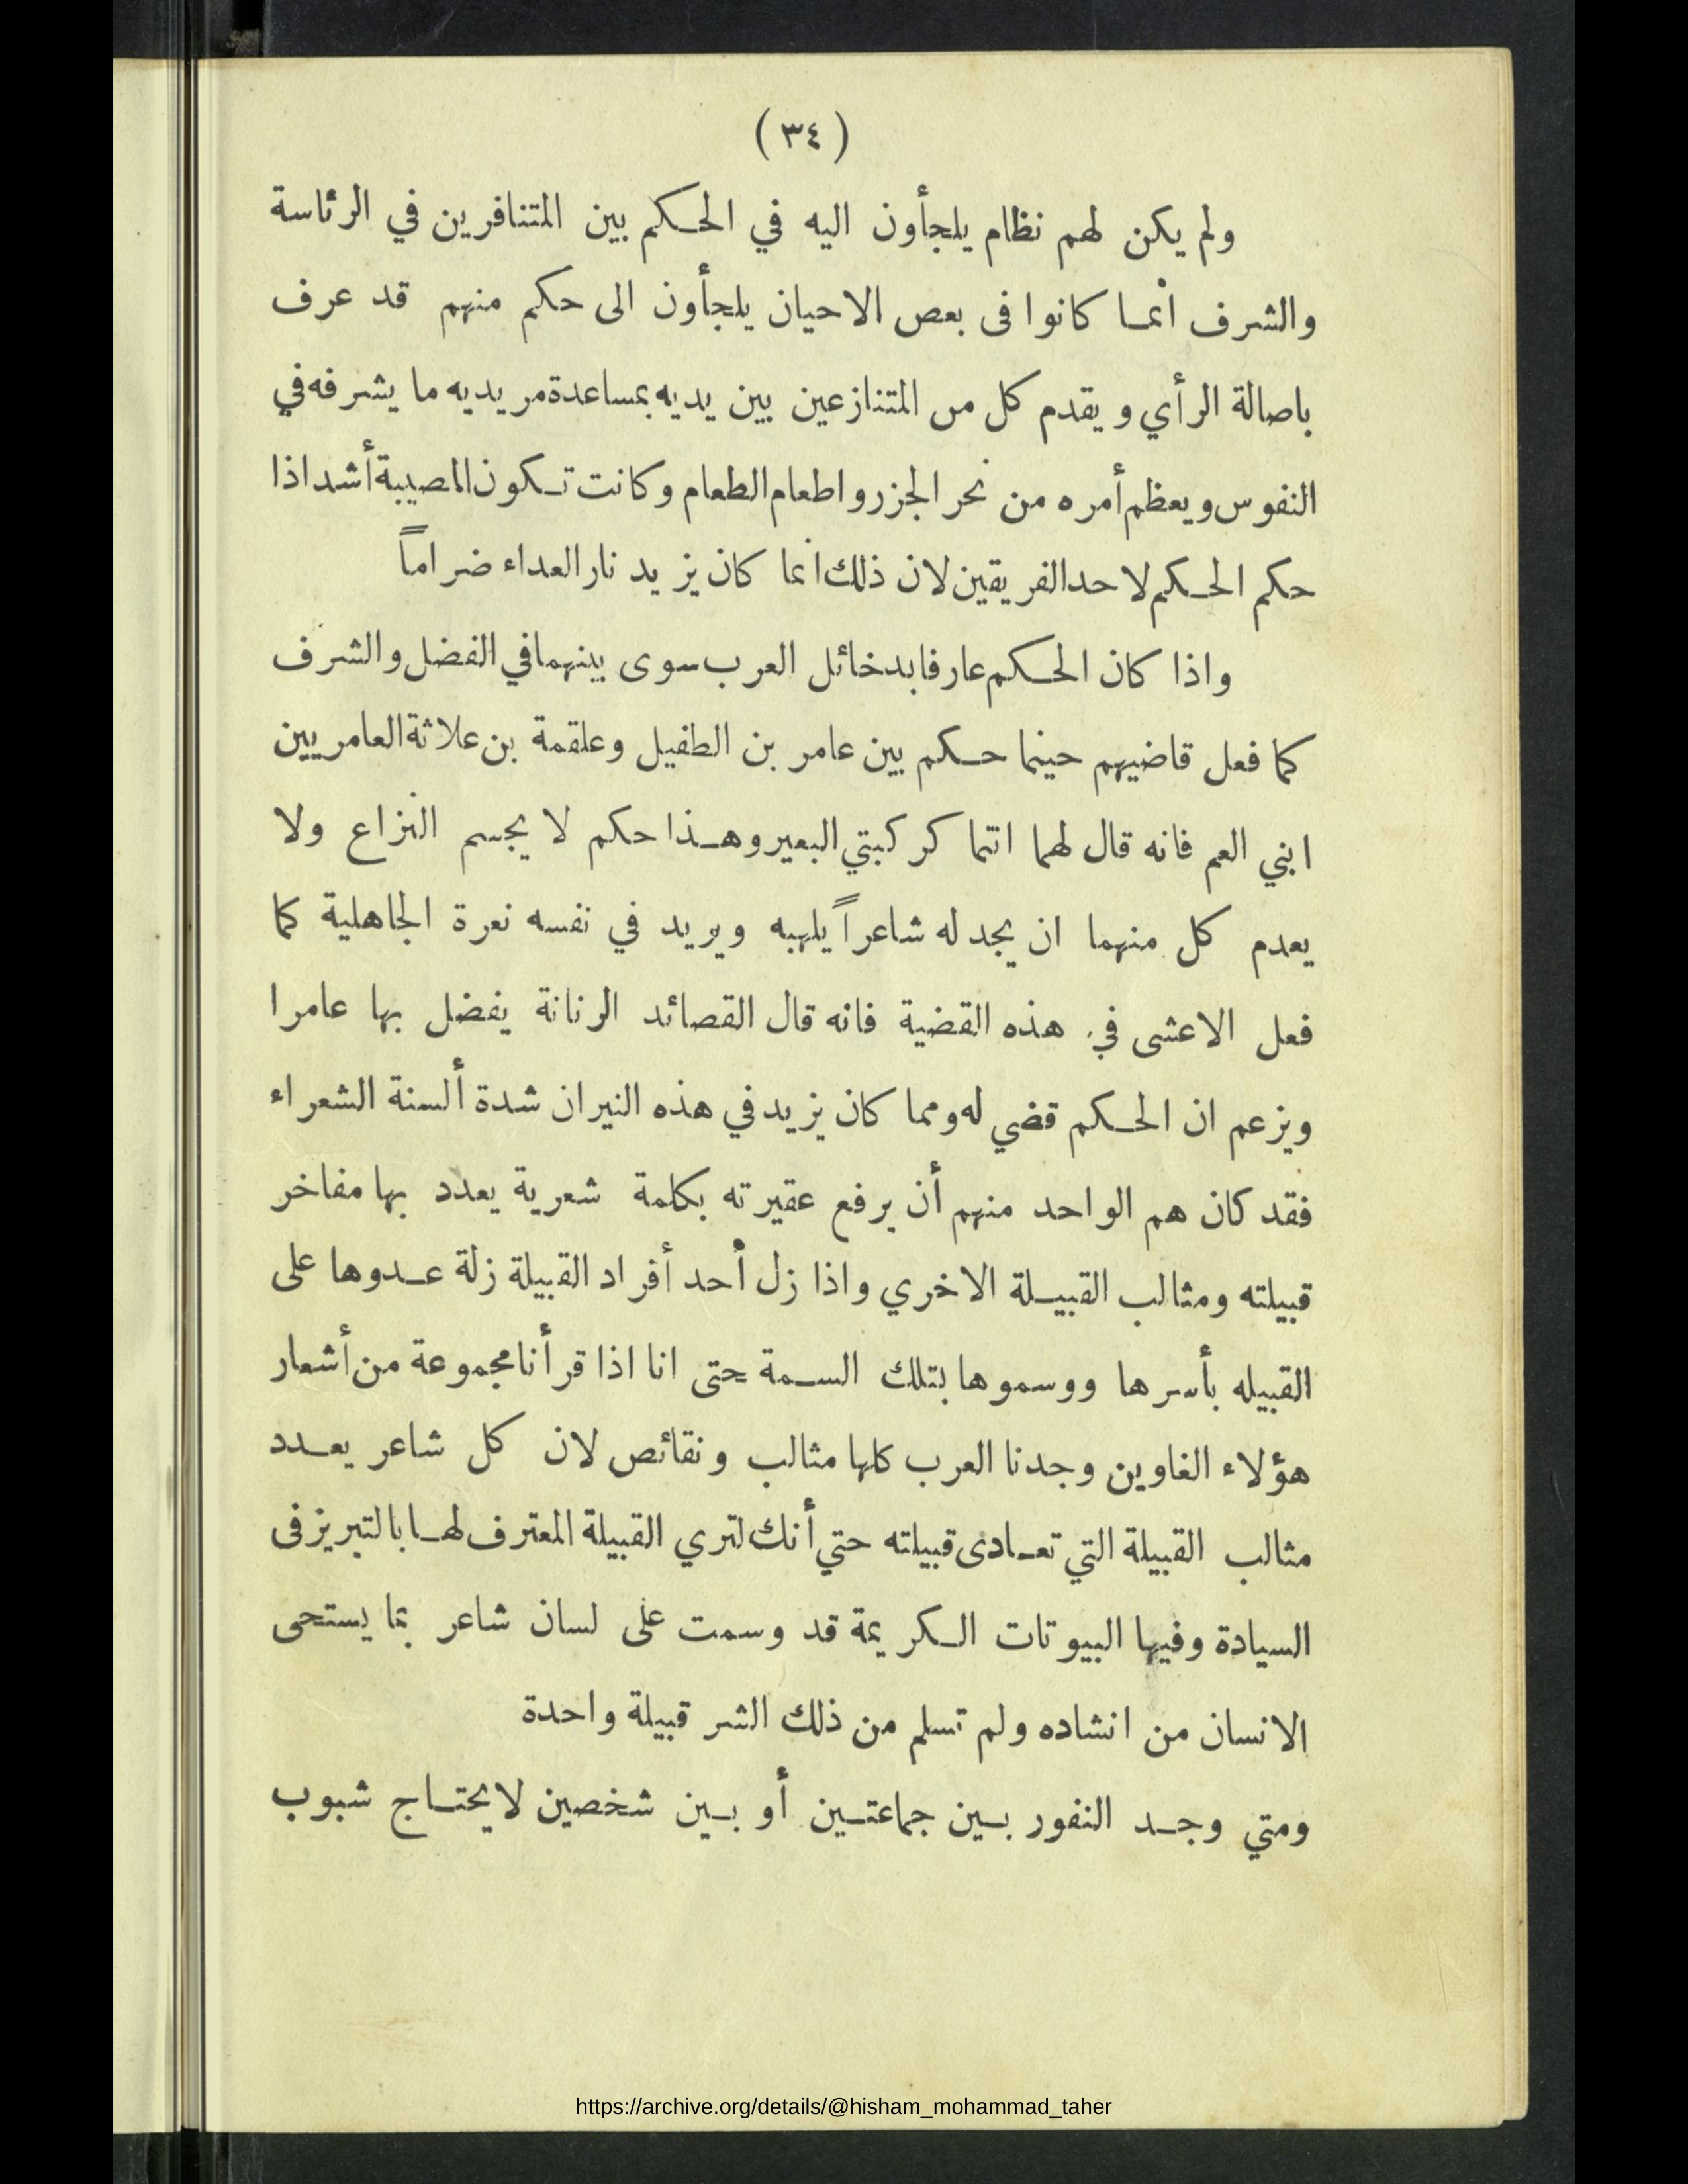 ( ٣٤ )
ولم يكن لهم نظام يلجأون اليه في الحكم بين المتنافرين في الرئاسة
والشرف انما كانوا فى بعص الاحيان يلجأون الى حكم منهم قد عرف
باصالة الرأي ويقدم كل من المتنازعين بين يديه بمساعدة مريديه ما يشرفه في
النفوس ويعظم أمره من نحر الجزر واطعام الطعام وكانت تكون المصيبة أشد اذا
حكم الحكم لاحد الفريقين لان ذلك انما كان يزيد نار العداء ضراماً
واذا كان الحكم عارفا بدخائل العرب سوى بينهما في الفضل والشرف
كما فعل قاضيهم حينما حكم بين عامر بن الطفيل وعلقمة بن علاثة العامريين
ابني العم فانه قال لهما انتما كركبتي البعير وهذا حكم لا يجسم النزاع ولا
يعدم كل منهما ان يجد له شاعراً يلهبه ويريد في نفسه نعرة الجاهلية كما
فعل الاعشى في هذه القضية فانه قال القصائد الرنانة يفضل بها عامرا
ويزعم ان الحكم قضي له ومما كان يزيد في هذه النيران شدة ألسنة الشعراء
فقد كان هم الواحد منهم أن يرفع عقيرته بكلمة شعرية يعدد بها مفاخر
قبيلته ومثالب القبيلة الاخري واذا زل أحد أفراد القبيلة زلة عدوها على
القبيله بأسرها ووسموها بتلك السمة حتى انا اذا قرأنا مجموعة من أشعار
هؤلاء الغاوين وجدنا العرب كلها مثالب ونقائص لان كل شاعر يعدد
مثالب القبيلة التي تعادى قبيلته حتي أنك لتري القبيلة المعترف لها بالتبريز فى
السيادة وفيها البيوتات الكريمة قد وسمت على لسان شاعر بما يستحى
الانسان من انشاده ولم تسلم من ذلك الشر قبيلة واحدة
ومتي وجد النفور بين جماعتين أو بين شخصين لا يحتاج شبوب
https://archive.org/details/@hisham_mohammad_taher